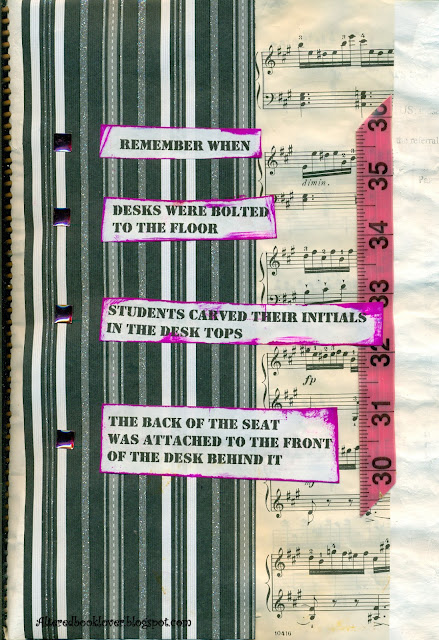 REMEMBER WHEN
DESKS WERE BOLTED
TO THE FLOOR
STUDENTS CARVED THEIR INITIALS
IN THE DESK TOPS
THE BACK OF THE SEAT
WAS ATTACHED TO THE FRONT
OF THE DESK BEHIND IT
dimin.
fp
36
35
34
33
32
31
30
10416
Alteredbooklover.blogspot.com